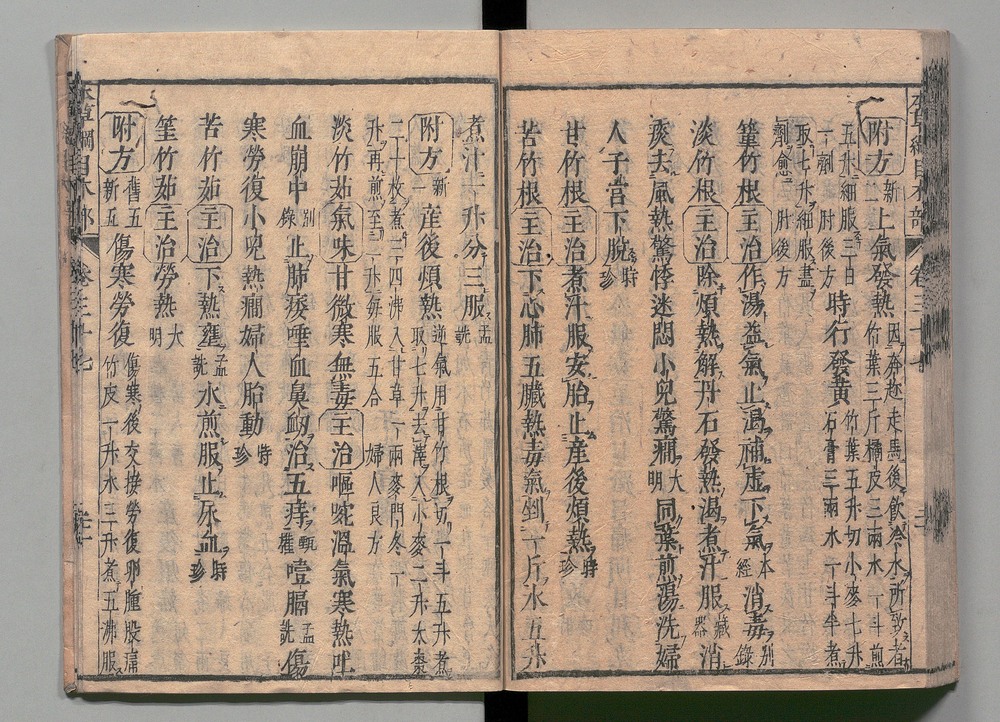 附方 新二 上氣發熱 因奔趂走馬後飲冷水所致者竹葉三斤橘皮三兩水一斗煎
五升細服三日一劑 肘後方 時行發黄 竹葉五升切小麥七升石膏三兩水一斗半煮
取七升細服盡劑愈 肘後方
篁竹根 主治 作湯益氣止渴補虚下氣 本經 消毒 別錄
淡竹根 主治 除煩熱解丹石發熱渴煮汁服 藏器 消
痰去風熱驚悸迷悶小兒驚癇 大明 同葉煎湯洗婦
人子宫下脫 時珍
甘竹根 主治 煮汁服安胎止産後煩熱 時珍
苦竹根 主治 下心肺五臟熱毒氣剉一斤水五升
煮汁一升分三服 孟詵
附方 新一 産後煩熱 逆氣用甘竹根切一斗五升煮取七升去滓入小麥二升大棗
二十枚煮三四沸入甘草一兩麥門冬一升再煎至二升每服五合 婦人良方
淡竹茹 氣味 甘微寒無毒 主治 嘔啘溫氣寒熱吐
血崩中 別錄 止肺痿唾血鼻衂治五痔 甄權 噎膈 孟詵 傷
寒勞復小兒熱癇婦人胎動 時珍
苦竹茹 主治 下熱壅 孟詵 水煎服止尿血 時珍
筀竹茹 主治 勞熱 大明
附方 舊五新五 傷寒勞復 傷寒後交接勞復卵腫股痛竹皮一升水三升煮五沸服
本草綱目木部 卷三十七